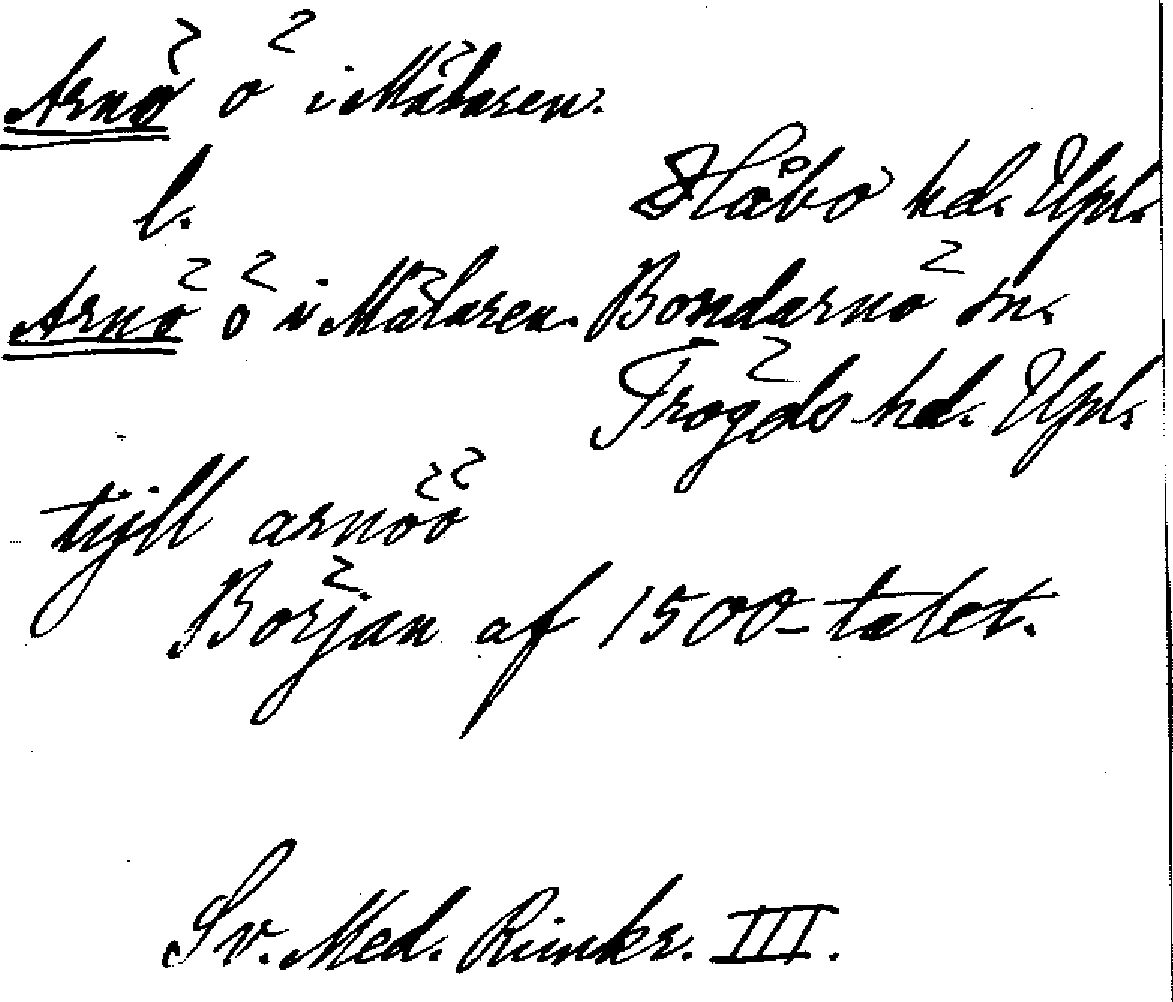 Arnö ö i Mälaren.
l. Håbo hd. Upl.
Arnö ö i Mälaren. Bondarnö sn.
Trögds hd. Upl.
tijll arnöö
Början af 1500-talet.
Sv. Med. Rimkr. III.